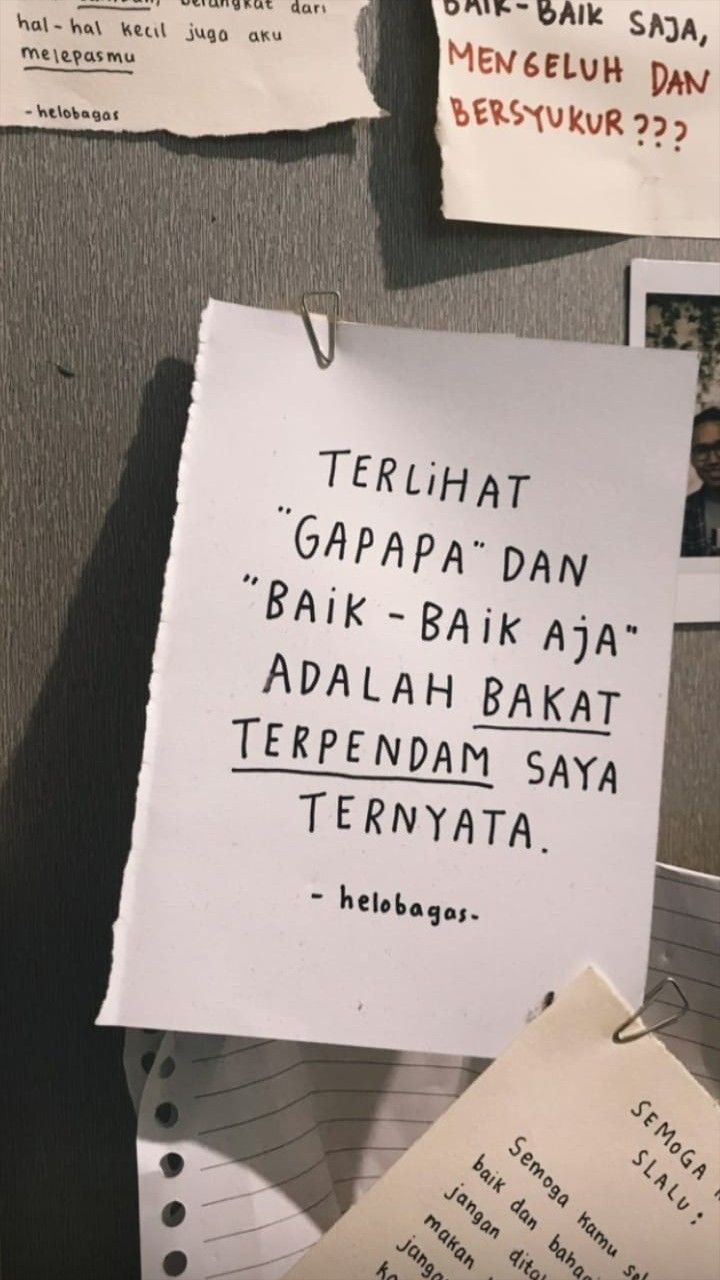 berangkat dari
hal-hal kecil juga aku
melepasmu
- helobagas
BAIK-BAIK SAJA,
MENGELUH DAN
BERSYUKUR???
TERLIHAT
"GAPAPA" DAN
"BAIK - BAIK AJA"
ADALAH BAKAT
TERPENDAM SAYA
TERNYATA.
- helobagas-
SEMOGA
SLALU:
Semoga kamu
baik dan
jangan
makan